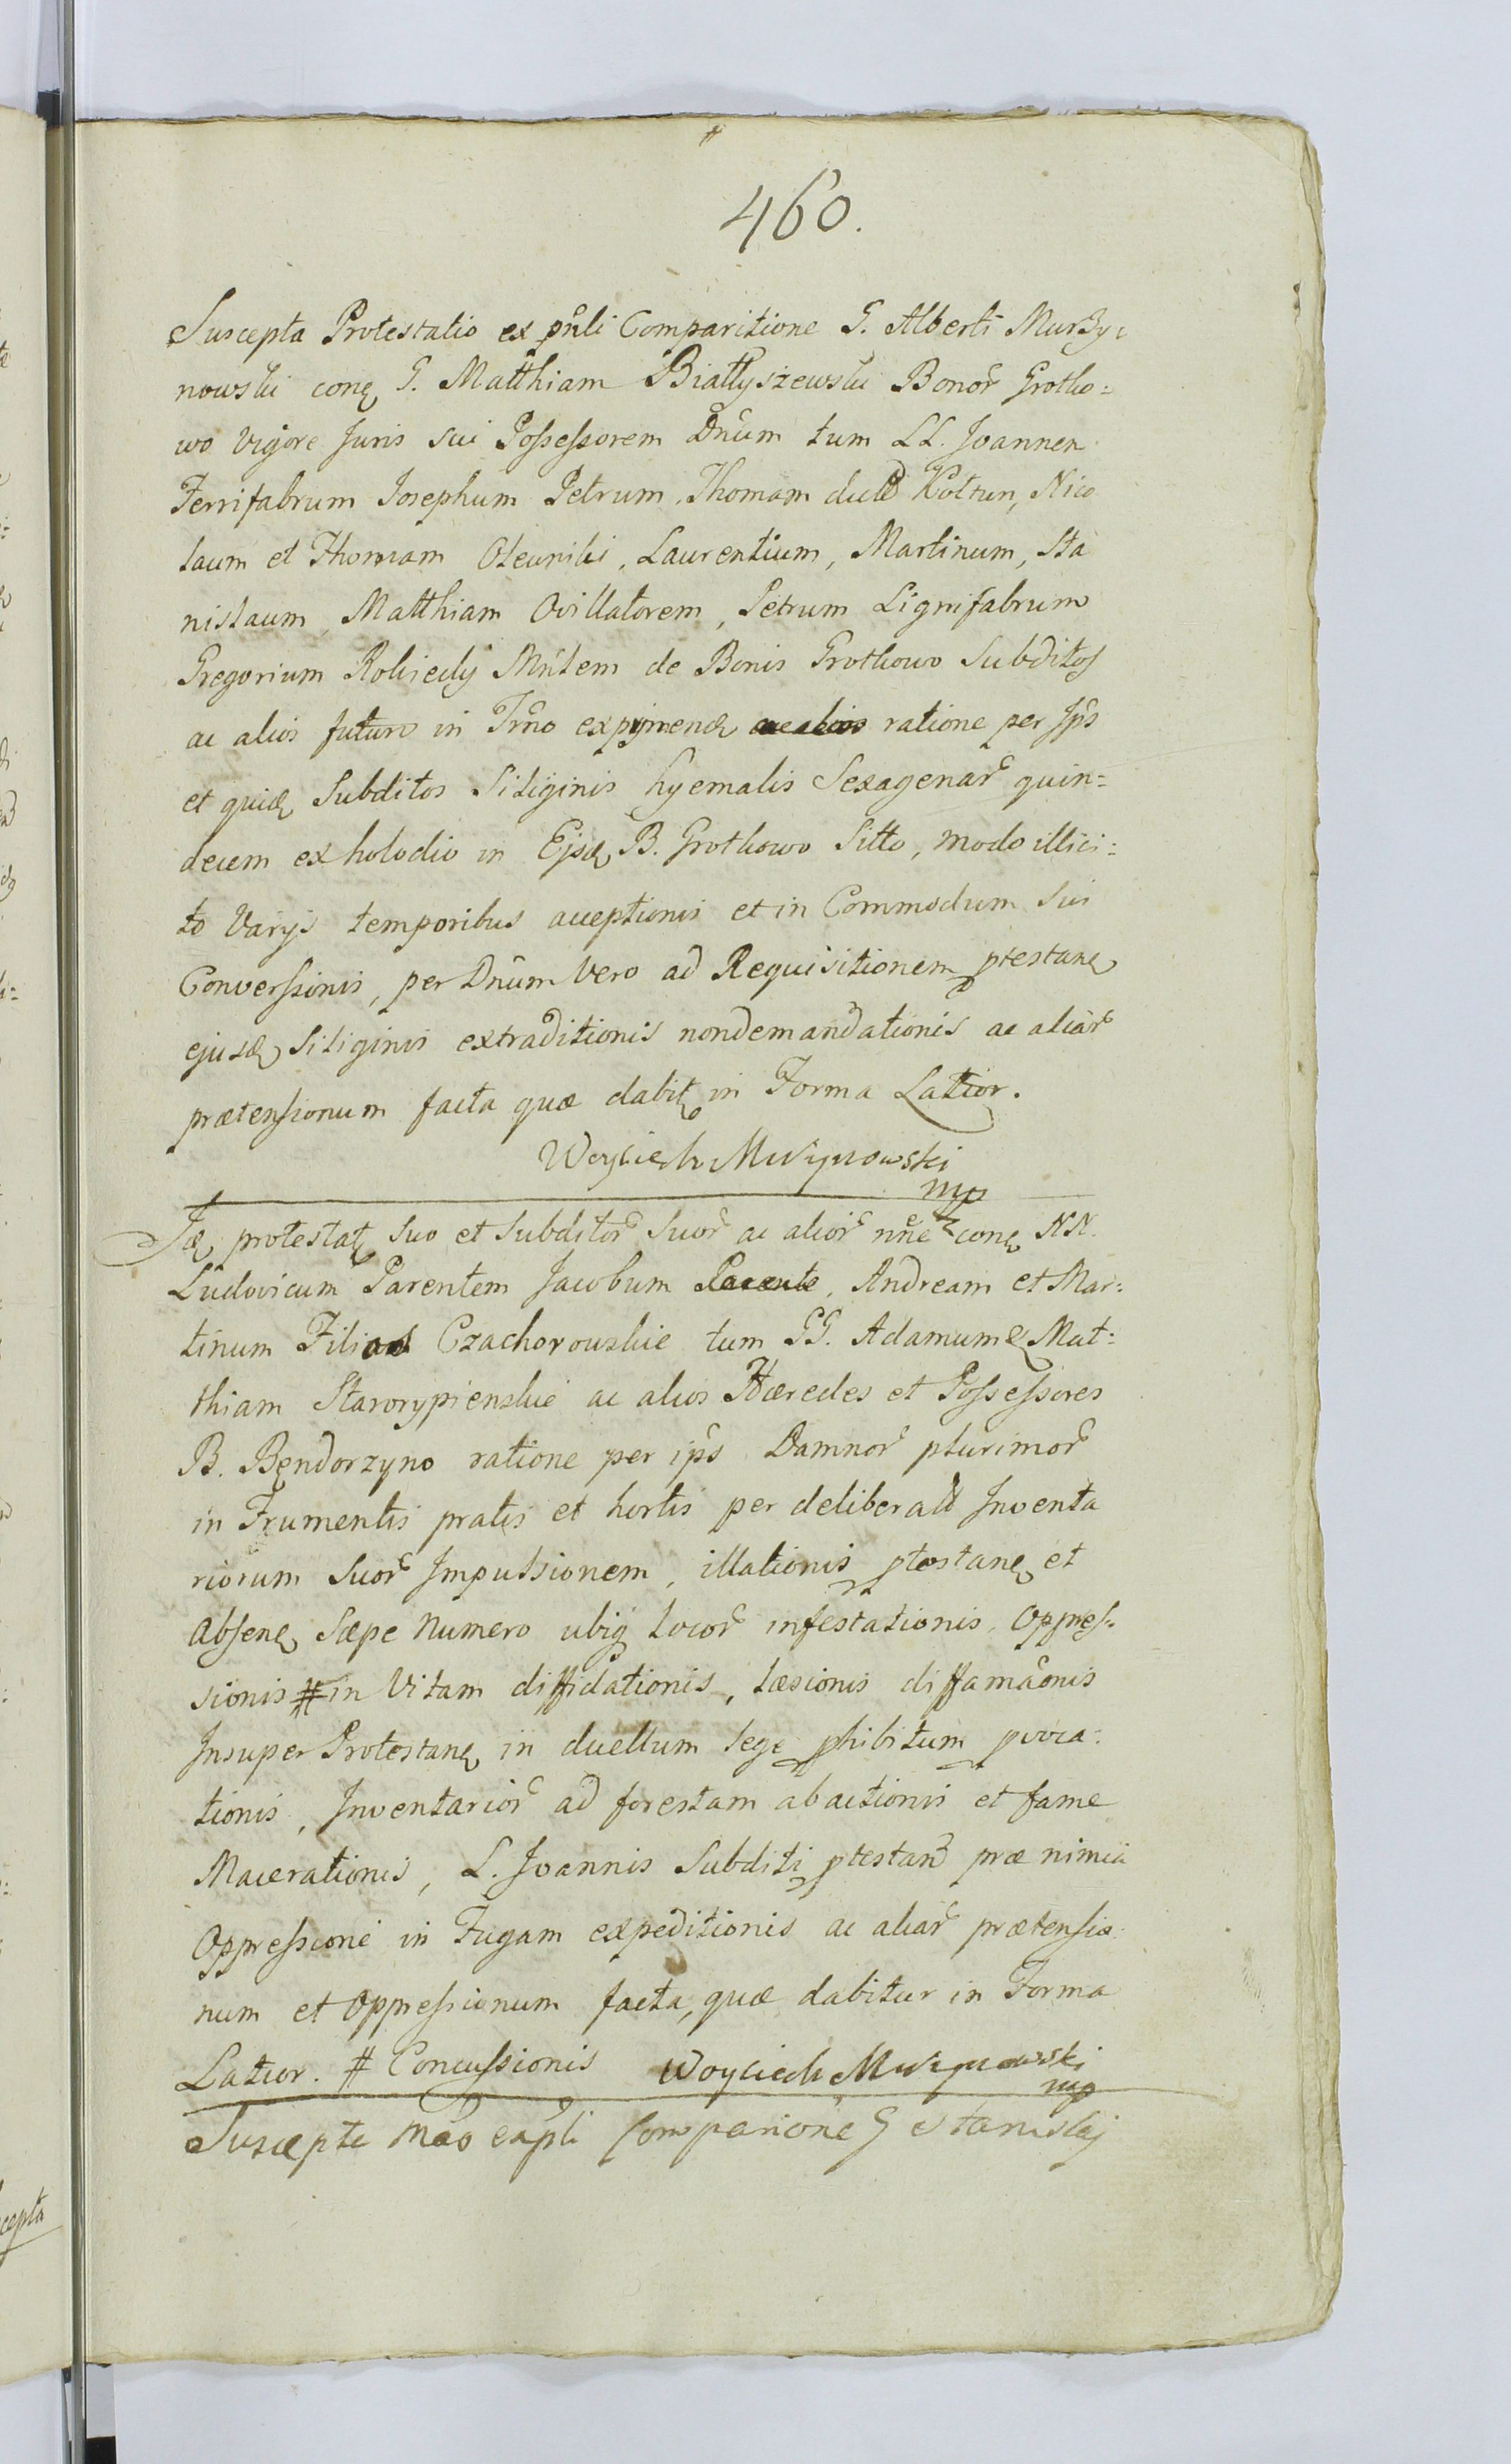 460.
Suscepta Protestatio ex pñli Comparitione G. Alberti Murzy:
nowski conę G. Matthiam Białłyszewski Bonor̃ Grotko=
wo vigore Juris sui Possessorem Dñum tum LL. Joannen
Ferrifabrum Josephum Petrum, Thomam dictũ Kołtun, Nico
laum et Thomam Olewniki, Laurentium, Martinum, Sta
nislaum, Matthiam Ovillatorem, Petrum Lignifabrum
Gregorium Kobiedy Mñlem de Bonis Grotkowo Subditos
ac alios futuro in Trño exprimenđ ratione per Ips̃
et quidę Subditos Siliginis hyemalis Sexagenar̃ quin=
decem ex holodio in Ejsdę B. Grotkowo Sitto, modo illici:
to varys temporibus acceptionis et in Commodum sui
Conversionis, per Dñum vero ad Requisitionem ptestanę
ejusdę Siliginis extraditionis nondemandationis ac aliar̃
prætensionum facta quæ dabitę in Forma Latior.
Woyciech Murzynowski
mp
Idę protestatę suo et subditor̃ suor̃ ac alior̃ nñe conę NN.
Ludovicum Parentem Jacobum Parente, Andream et Mar:
tinum Filios Czachorowskie tum GG. Adamum & Mat:
thiam Starorypienskie ac alios Hæredes et Possessores
B. Bendorzyno ratione per ips̃ Damnor̃ plurimor̃
in Frumentis pratis et hortis per deliberatã Inventa
riorum suor̃ Impulsionem, illationis ptestanę et
Absenę sæpe numero ubiq locor̃ infestationis, Oppres:
sionis # in Vitam diffidationis, læsionis diffamãonis
Insuper Protestanę in duellum lege phibitum pvoca:
tionis, Inventarior̃ ad forestam abactionis et fame
Macerationis, L. Joannis Subditi ptestanẽ præ nimia
Oppressione in Fugam expeditionis ac aliar̃ prætensio
num et Oppressionum facta, quæ dabitur in Forma
Latior. # Concussionis Woyciech Murzynowski
mp
Comparione G Stanislaj